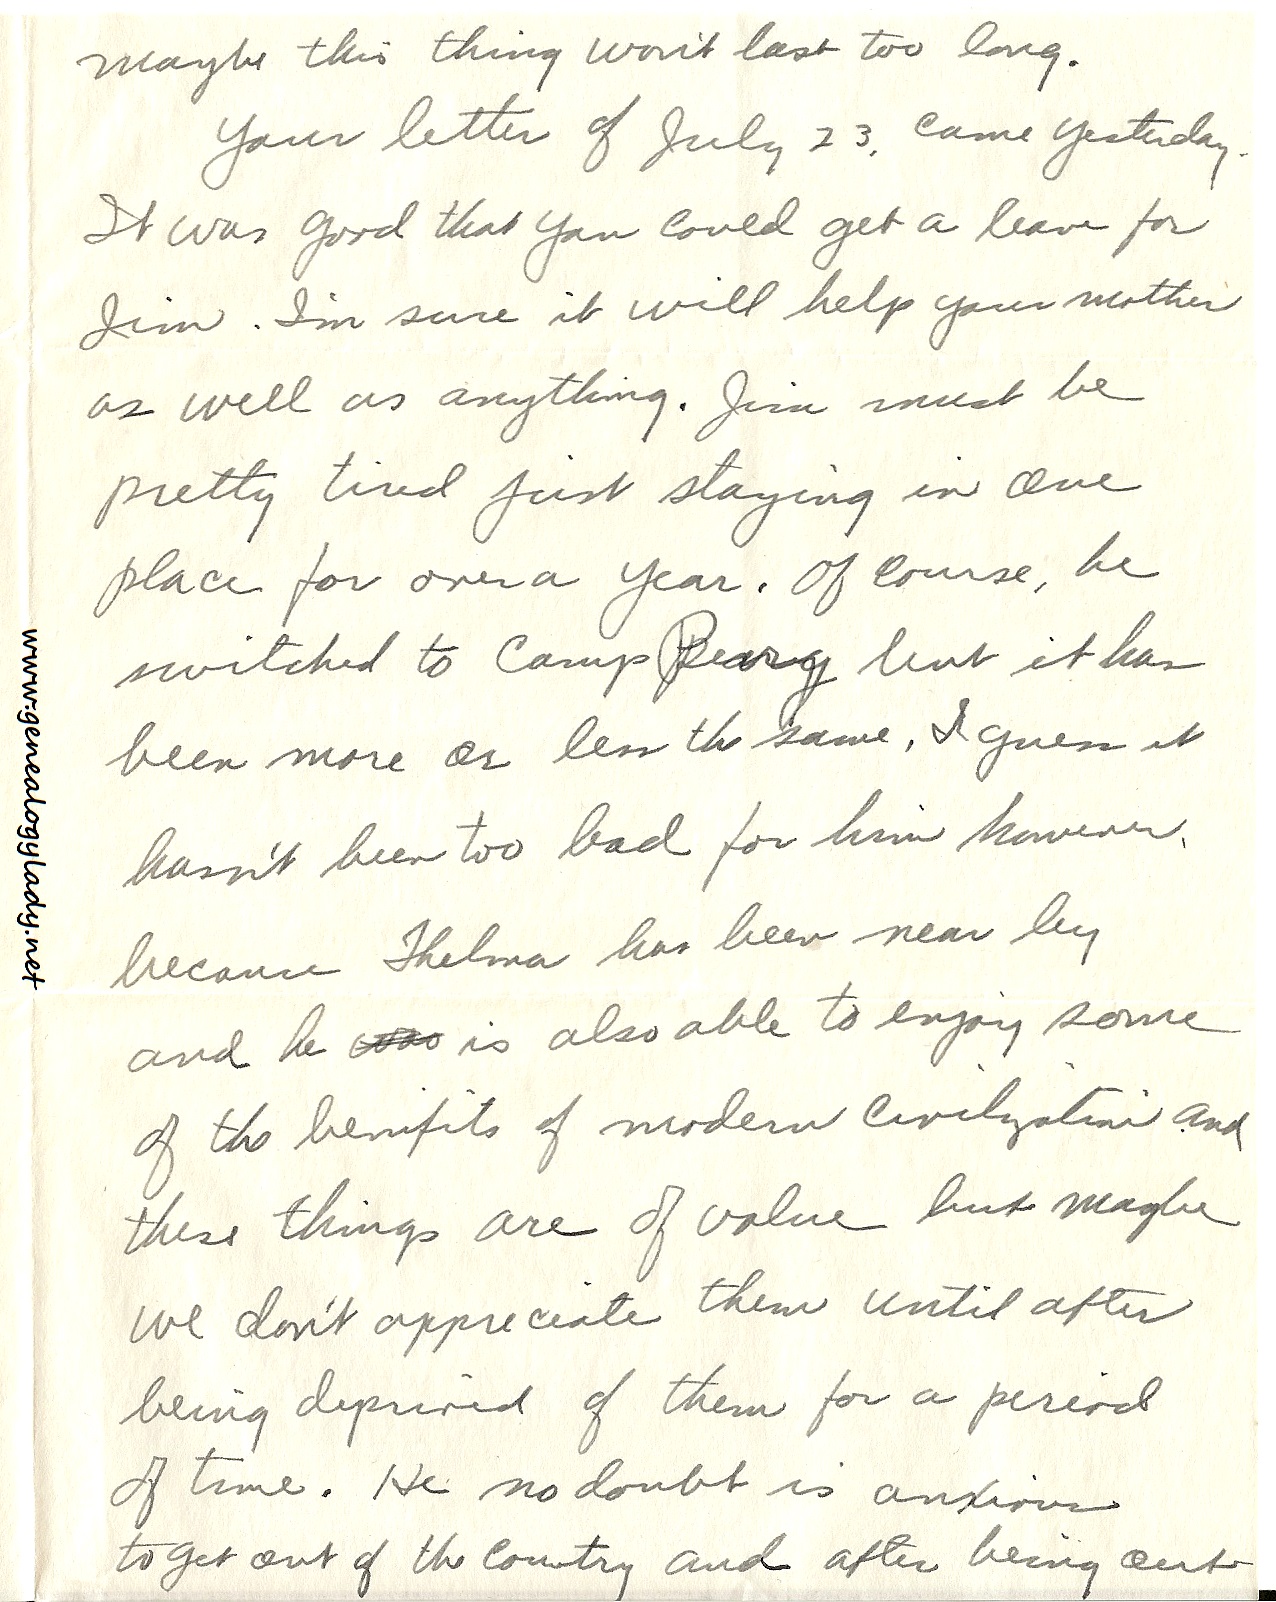 maybe this thing won't last too long.
Your letter of July 23, came yesterday.
It was good that you could get a leave for
Jim. I'm sure it will help your mother
as well as anything. Jim must be
pretty tired just staying in one
place for over a year. Of course, he
switched to Camp Peary but it has
been more or less the same, I guess it
hasn't been too bad for him however,
because Thelma has been near by
and he is also able to enjoy some
of the benifits of modern civilization and
these things are of value but maybe
we don't appreciate them until after
being deprived of them for a period
of time. He no doubt is anxious
to get out of the country and after being out
www.genealogylady.net